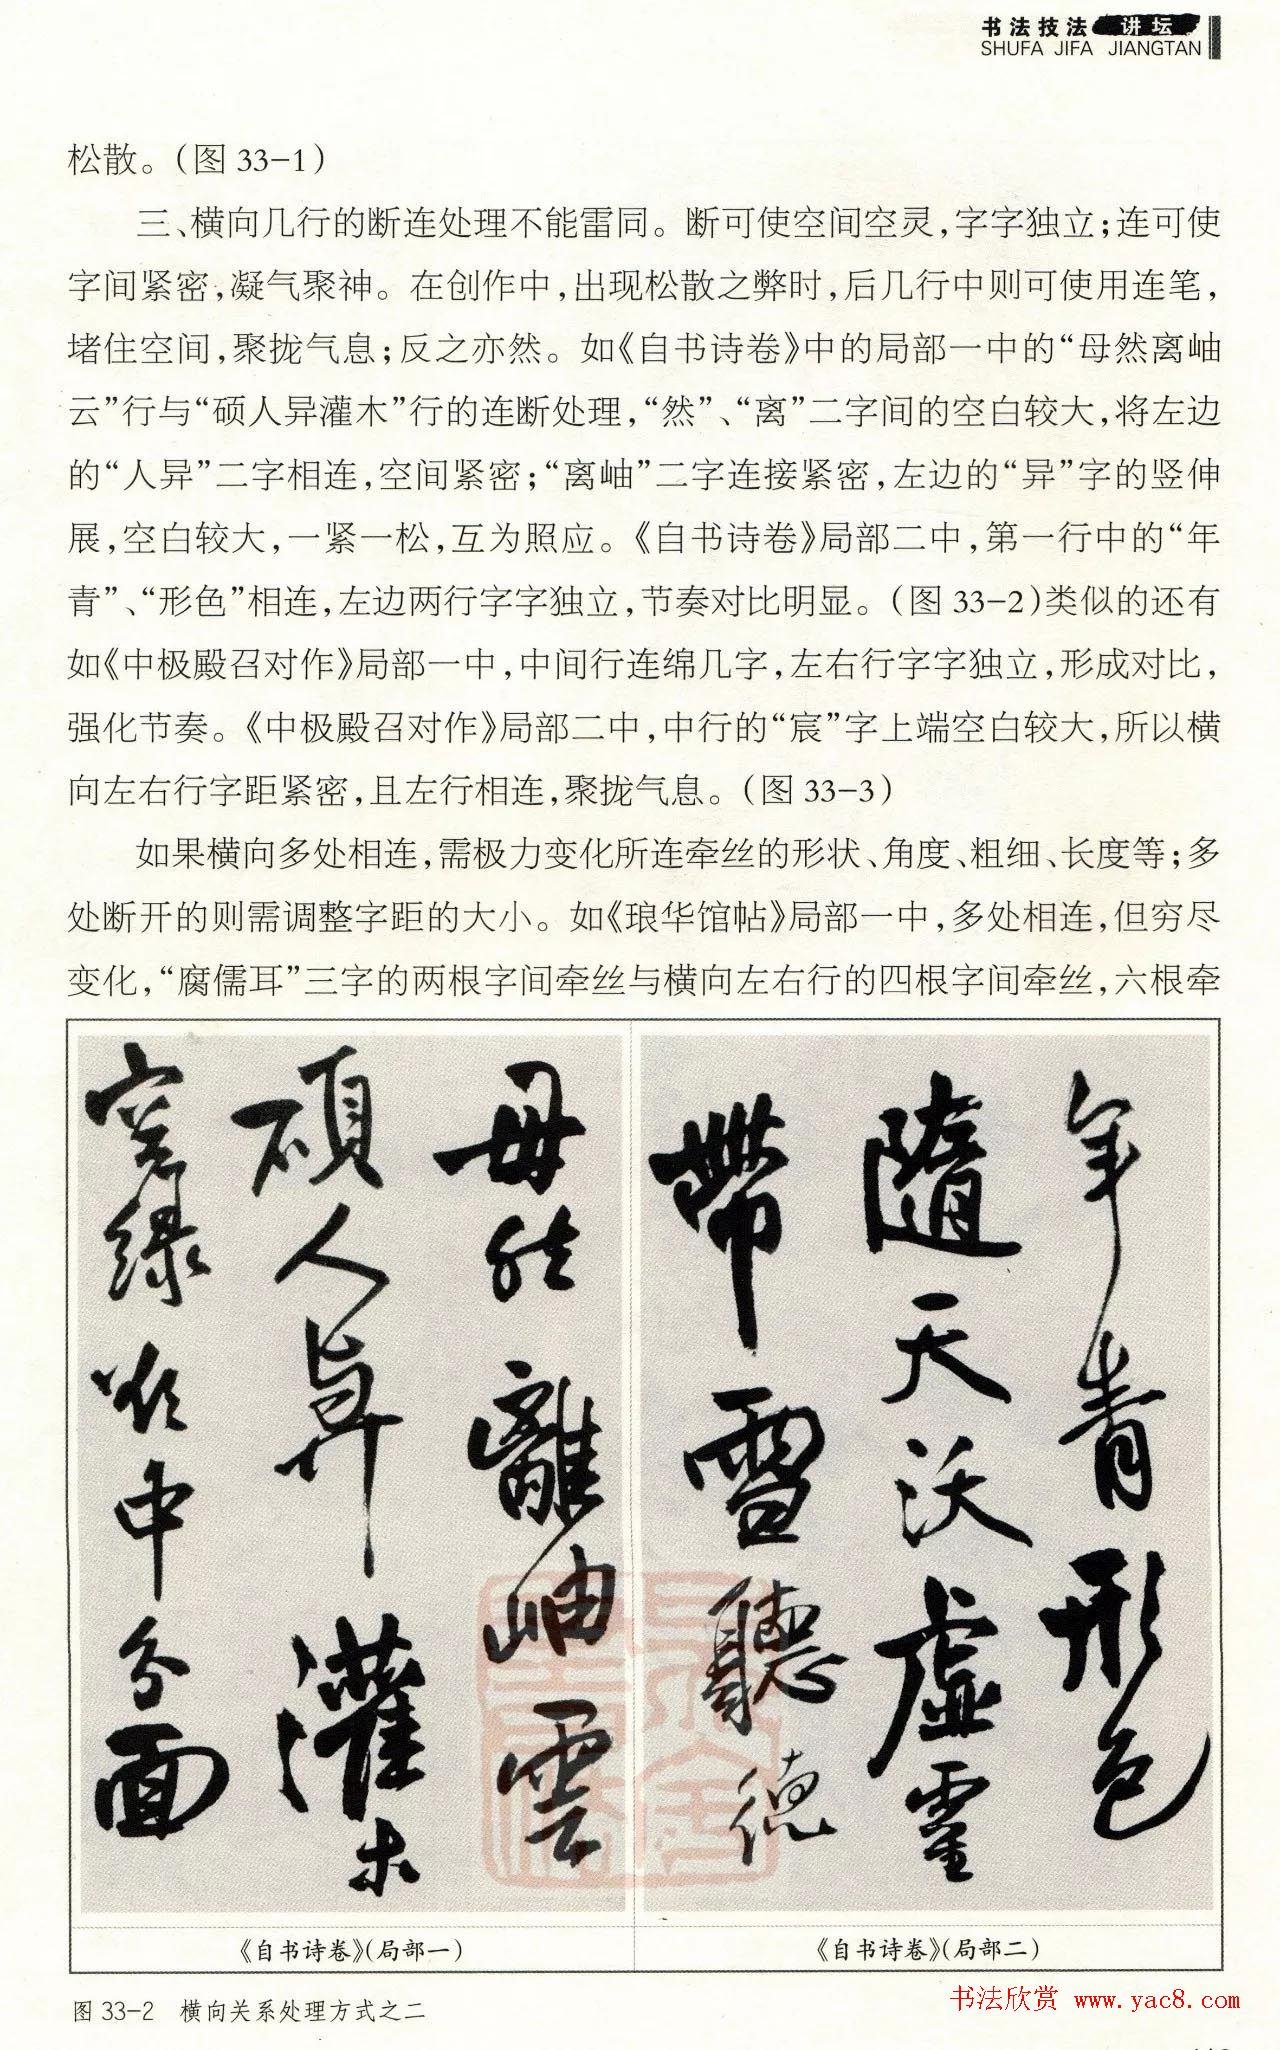 书法技法 讲坛
SHUFA JIFA JIANGTAN
松散。（图 33-1）
三、横向几行的断连处理不能雷同。断可使空间空灵，字字独立；连可使
字间紧密，凝气聚神。在创作中，出现松散之弊时，后几行中则可使用连笔，
堵住空间，聚拢气息；反之亦然。如《自书诗卷》中的局部一中的“母然离岫
云”行与“硕人异灌木”行的连断处理，“然”、“离”二字间的空白较大，将左边
的“人异”二字相连，空间紧密；“离岫”二字连接紧密，左边的“异”字的竖伸
展，空白较大，一紧一松，互为照应。《自书诗卷》局部二中，第一行中的“年
青”、“形色”相连，左边两行字字独立，节奏对比明显。（图 33-2）类似的还有
如《中极殿召对作》局部一中，中间行连绵几字，左右行字字独立，形成对比，
强化节奏。《中极殿召对作》局部二中，中行的“宸”字上端空白较大，所以横
向左右行字距紧密，且左行相连，聚拢气息。（图 33-3）
如果横向多处相连，需极力变化所连牵丝的形状、角度、粗细、长度等；多
处断开的则需调整字距的大小。如《琅华馆帖》局部一中，多处相连，但穷尽
变化，“腐儒耳”三字的两根字间牵丝与横向左右行的四根字间牵丝，六根牵
年青形色
隨天沃虛靈
帶雪聽德
毋然離岫雲
碩人异灌木
寬緑歌中分面
《自书诗卷》（局部一）
《自书诗卷》（局部二）
图 33-2 横向关系处理方式之二
书法欣赏 www.yac8.com